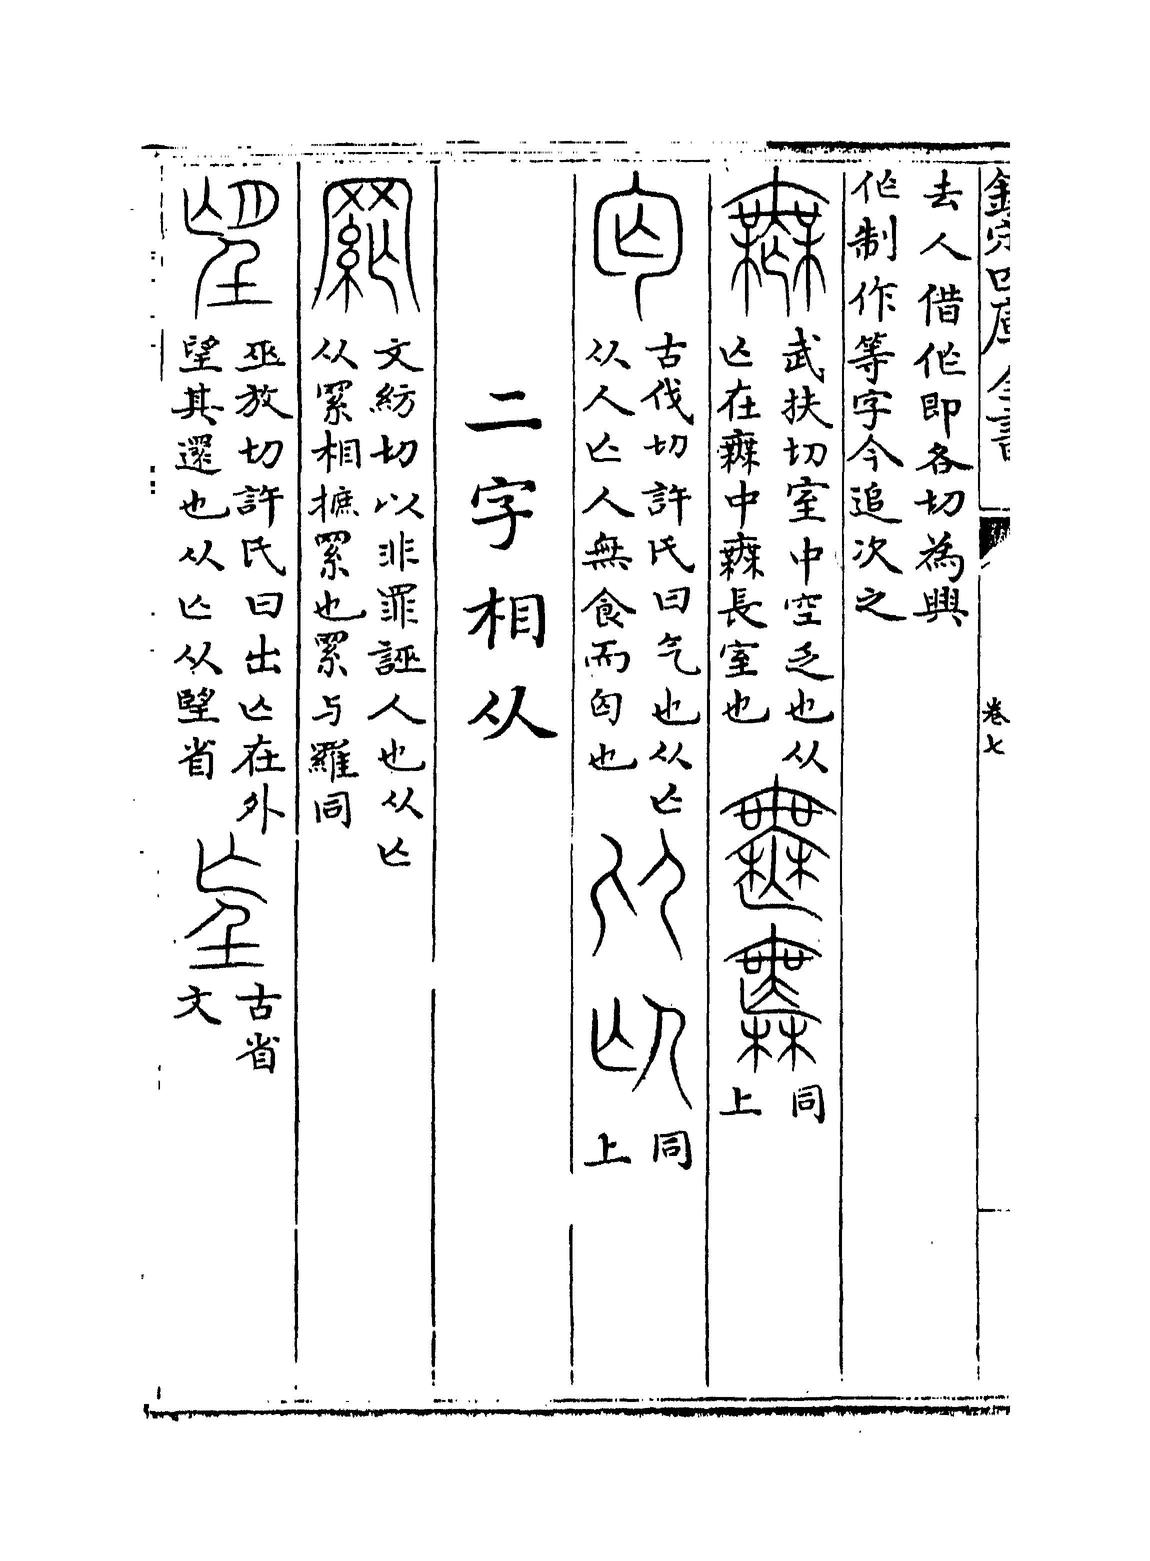 欽定四庫全書
卷七
去人借乍即各切為興
乍制作等字今追次之
武扶切室中空乏也从
亾在橆中橆長室也
同
上
古伐切許氏曰气也从亾
从人亾人無食而匃也
同
上
二字相从
文紡切以非罪誣人也从亾
从累相摭累也累与羅同
巫放切許氏曰出亾在外
望其還也从亾从朢省
古省
文